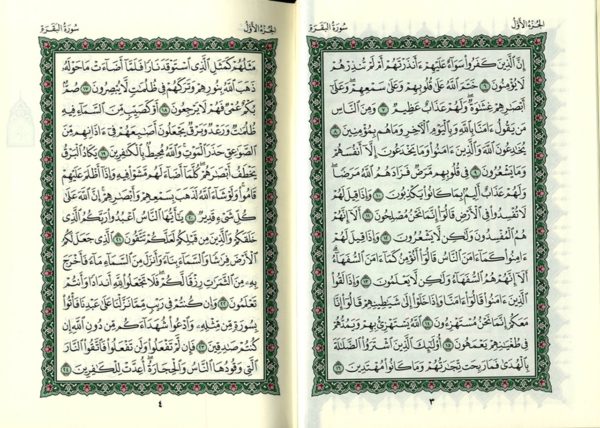 الجزء الأول
سورة البقرة
إن الذين كفروا سواء عليهم ءأنذرتهم أم لم تنذرهم
لا يؤمنون ٦ ختم الله على قلوبهم وعلى سمعهم وعلى
أبصرهم غشوة ولهم عذاب عظيم ٧ ومن الناس
من يقول ءامنا بالله وباليوم الأخر وما هم بمؤمنين ٨
يخدعون الله والذين ءامنوا وما يخدعون إلا أنفسهم
وما يشعرون ٩ في قلوبهم مرض فزادهم الله مرضا
ولهم عذاب أليم بما كانوا يكذبون ١٠ وإذا قيل لهم
لا تفسدوا في الأرض قالوا إنما نحن مصلحون ١١ ألا إنهم
هم المفسدون ولكن لا يشعرون ١٢ وإذا قيل لهم
ءامنوا كما ءامن الناس قالوا أنؤمن كما ءامن السفهاء
ألا إنهم هم السفهاء ولكن لا يعلمون ١٣ وإذا لقوا
الذين ءامنوا قالوا ءامنا وإذا خلوا إلى شيطينهم قالوا إنا
معكم إنما نحن مستهزءون ١٤ الله يستهزئ بهم ويمدهم
في طغينهم يعمهون ١٥ أولئك الذين اشتروا الضللة
بالهدى فما ربحت تجرتهم وما كانوا مهتدين ١٦
٣
الجزء الأول
سورة البقرة
مثلهم كمثل الذي استوقد نارا فلما أضاءت ما حوله
ذهب الله بنورهم وتركهم في ظلمت لا يبصرون ١٧ صم
بكم عمي فهم لا يرجعون ١٨ أو كصيب من السماء فيه
ظلمت ورعد وبرق يجعلون أصبعهم في ءاذانهم من
الصوعق حذر الموت والله محيط بالكفرين ١٩ يكاد البرق
يخطف أبصرهم كلما أضاء لهم مشوا فيه وإذا أظلم عليهم
قاموا ولو شاء الله لذهب بسمعهم وأبصرهم إن الله على
كل شيء قدير ٢٠ يأيها الناس اعبدوا ربكم الذي
خلقكم والذين من قبلكم لعلكم تتقون ٢١ الذي جعل لكم
الأرض فرشا والسماء بناء وأنزل من السماء ماء فأخرج
به من الثمرت رزقا لكم فلا تجعلوا لله أندادا وأنتم
تعلمون ٢٢ وإن كنتم في ريب مما نزلنا على عبدنا فأتوا
بسورة من مثله وادعوا شهداءكم من دون الله إن
كنتم صدقين ٢٣ فإن لم تفعلوا ولن تفعلوا فاتقوا النار
التي وقودها الناس والحجارة أعدت للكفرين ٢٤
٤